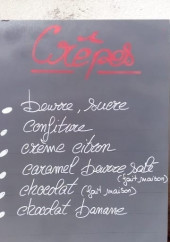 Crêpes
Beurre, sucre
Confiture
crème citron
caramel Beurre salé
(fait maison)
chocolat (fait maison)
chocolat Banane